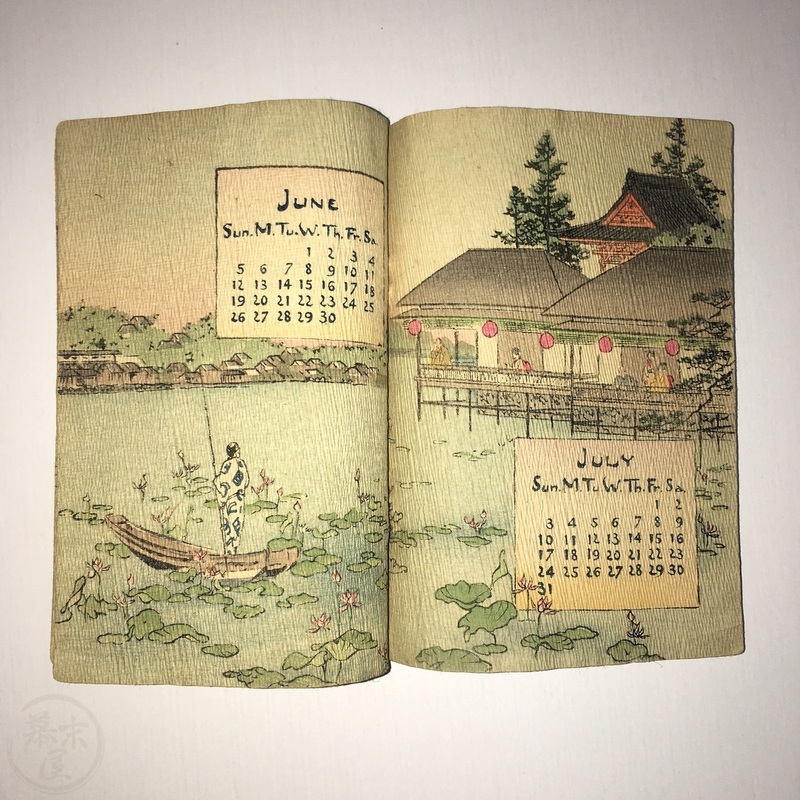 JUNE
Sun. M. Tu. W. Th. Fr. Sa.
1 2 3 4
5 6 7 8 9 10 11
12 13 14 15 16 17 18
19 20 21 22 23 24 25
26 27 28 29 30
JULY
Sun. M. Tu. W. Th. Fr. Sa.
1 2
3 4 5 6 7 8 9
10 11 12 13 14 15 16
17 18 19 20 21 22 23
24 25 26 27 28 29 30
31
幕末屋